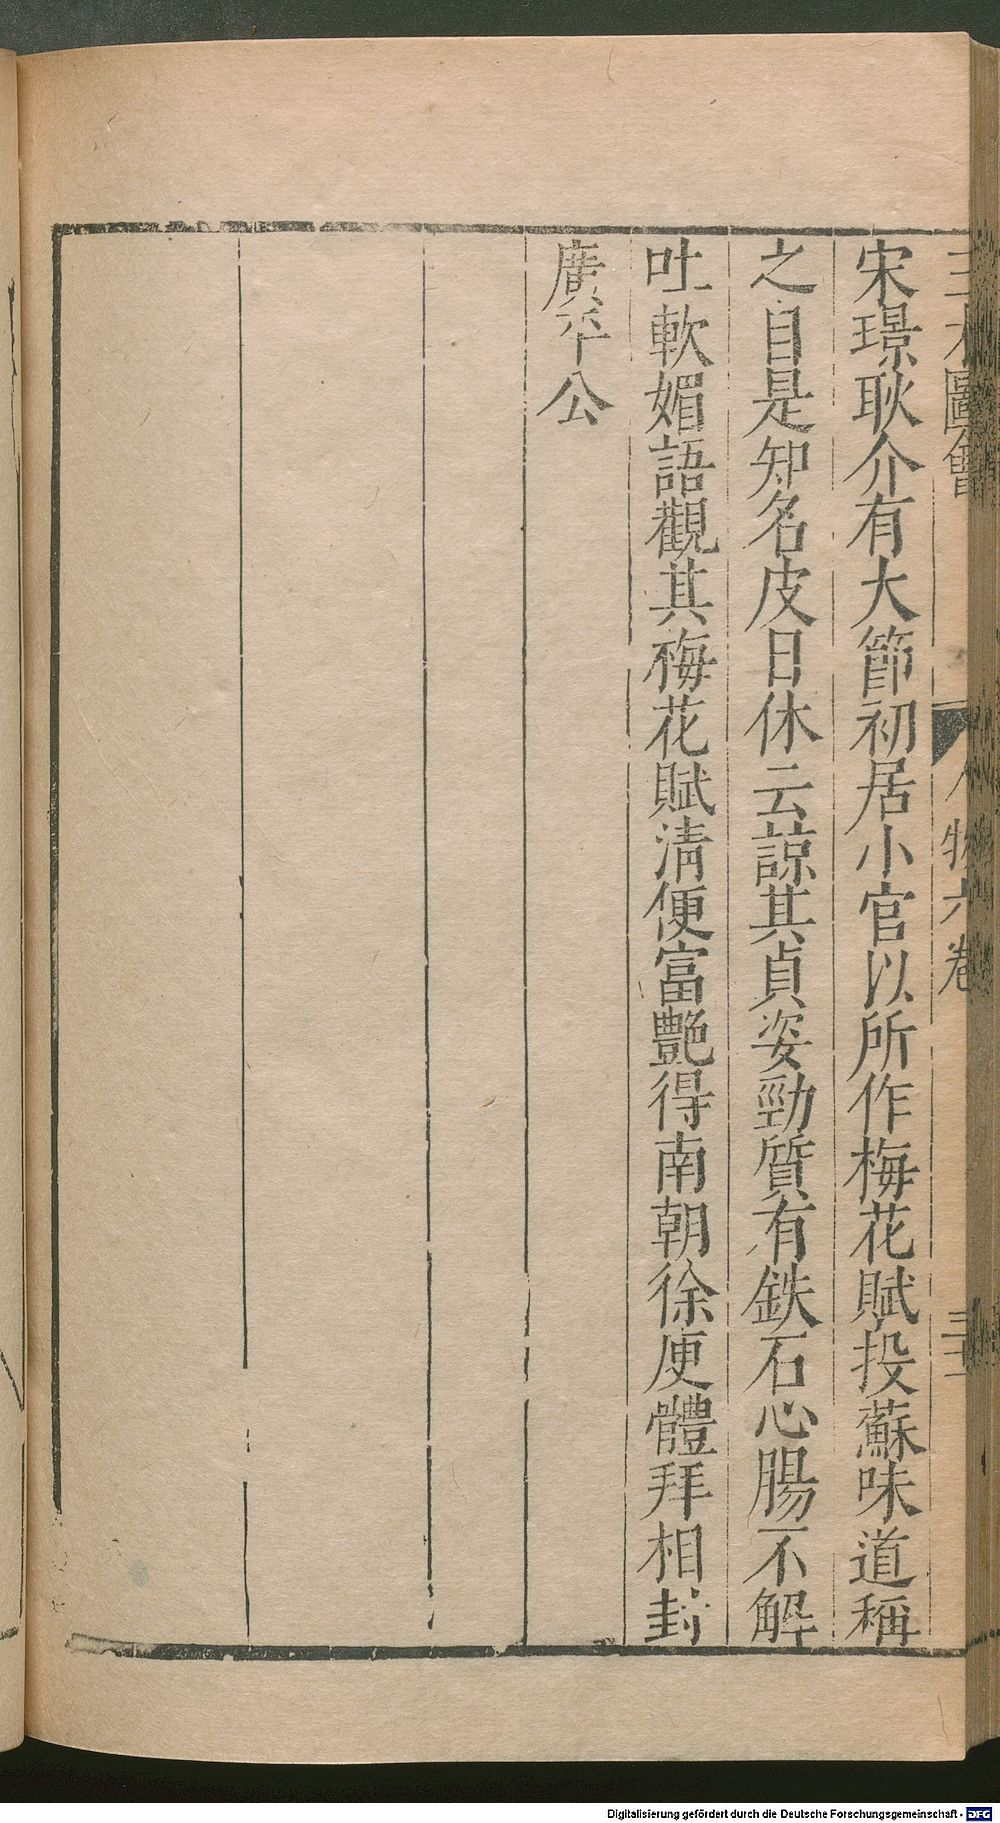 三才圖會 人物六卷 三十一
宋璟耿介有大節初居小官以所作梅花賦投蘇味道稱
之自是知名皮日休云諒其貞姿勁質有鉄石心腸不解
吐軟媚語觀其梅花賦清便富艷得南朝徐庾體拜相封
廣平公
Digitalisierung gefördert durch die Deutsche Forschungsgemeinschaft - DFG